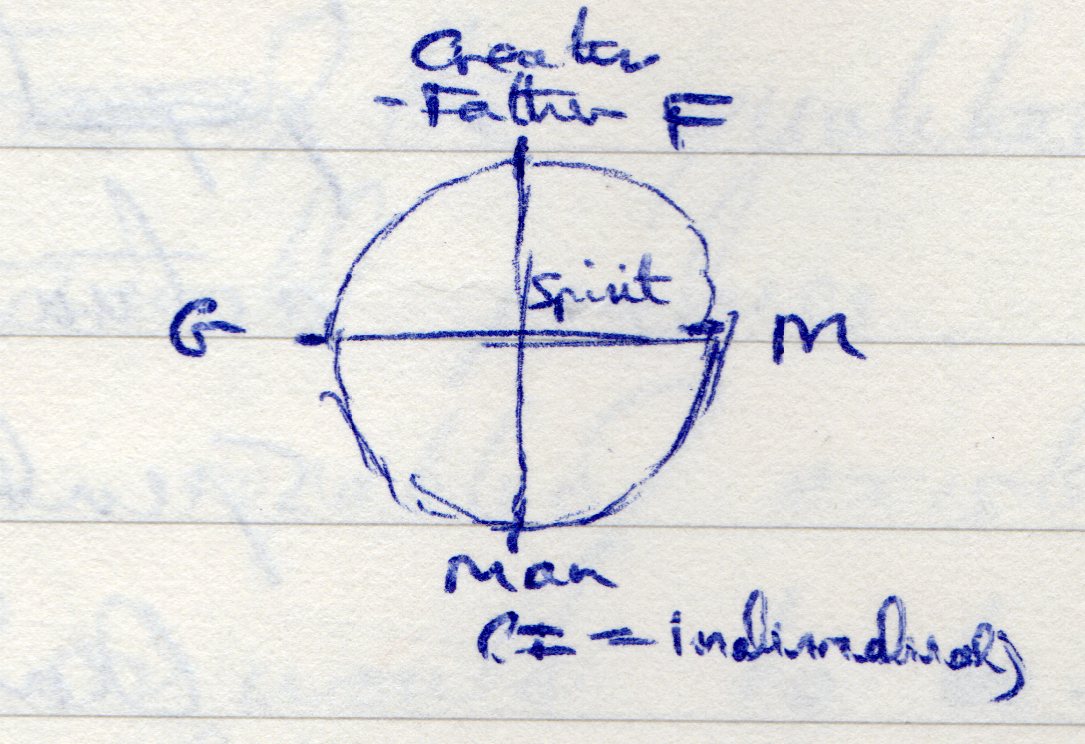 Creator
- Father F
Spirit
G M
Man
(I = individual)